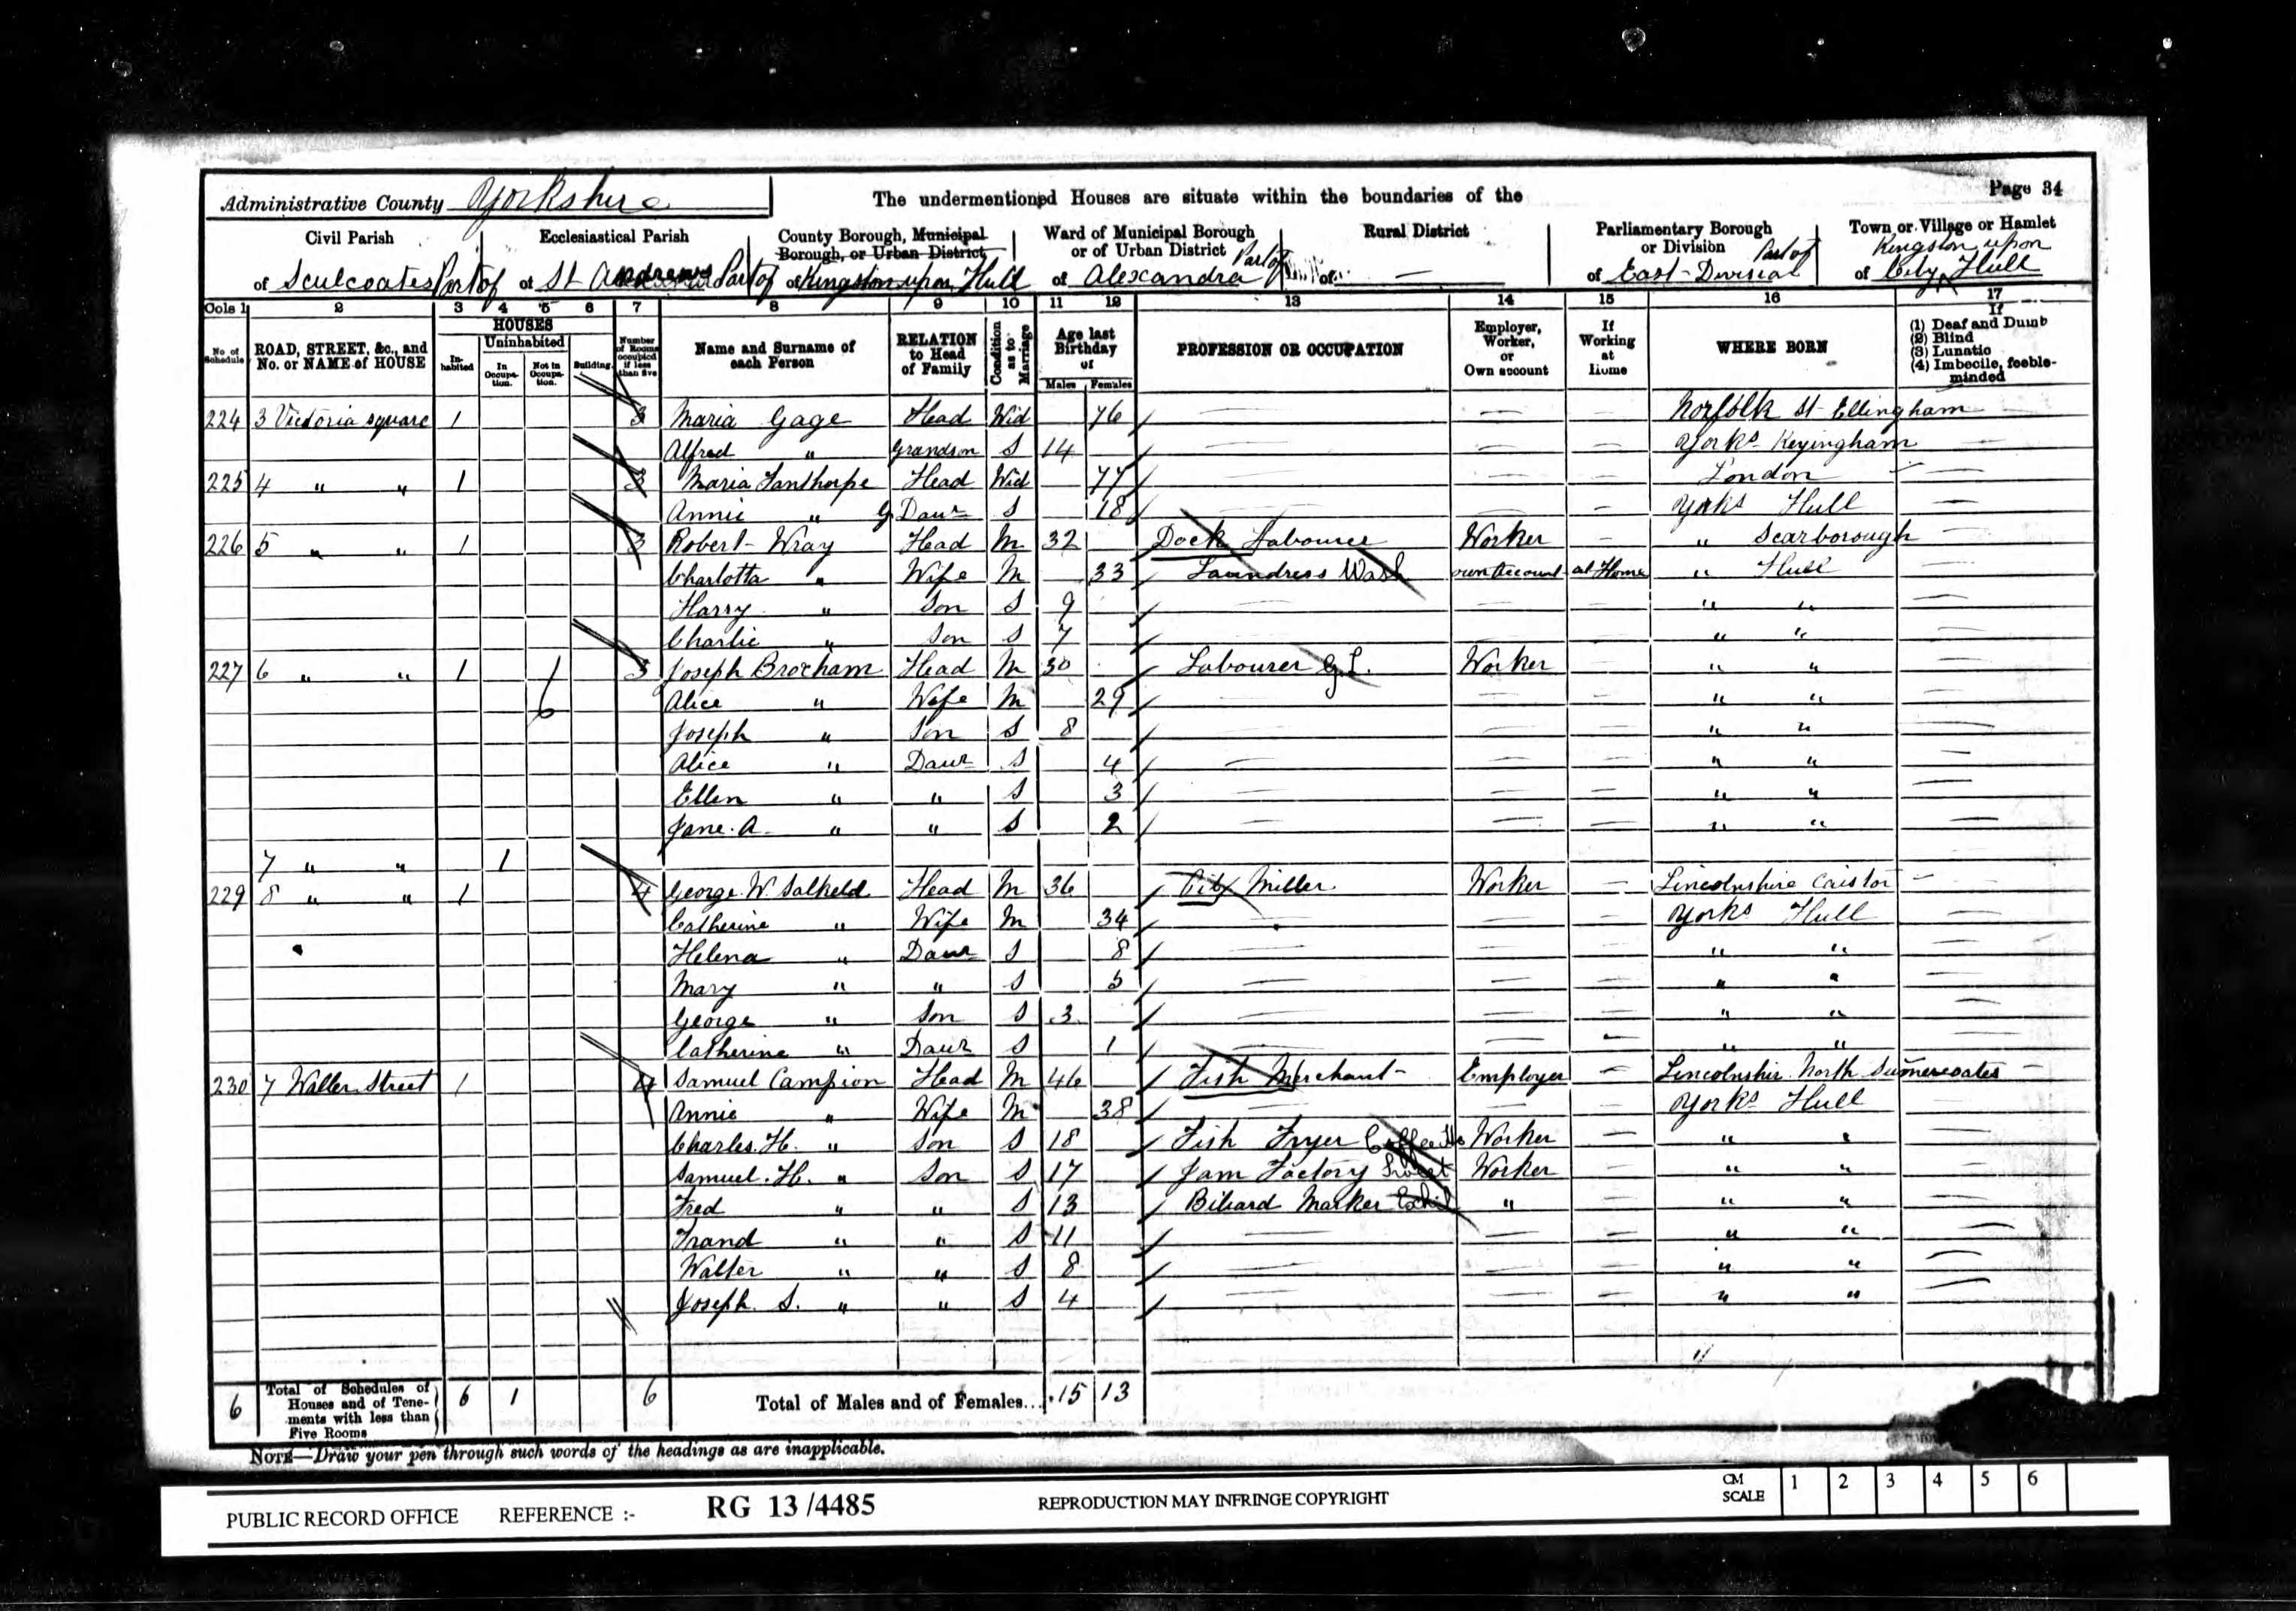 Administrative County Yorkshire The undermentioned Houses are situate within the boundaries of the Page 34
Civil Parish Ecclesiastical Parish County Borough, Municipal Borough, or Urban District Ward of Municipal Borough or of Urban District Rural District Parliamentary Borough or Division Town or Village or Hamlet
of Sculcoates Part of of St Andrews Part of of Kingston upon Hull of Alexandra Part of of — of East Division Part of of Kingston upon Hull City
Cols 1 2 3 4 5 6 7 8 9 10 11 12 13 14 15 16 17
No of Schedule ROAD, STREET, &c., and No. or NAME of HOUSE HOUSES Inhabited Uninhabited In Occupation. Not in Occupation. Building Number of Rooms occupied if less than five Name and Surname of each Person RELATION to Head of Family Condition as to Marriage Age last Birthday of Males Females PROFESSION OR OCCUPATION Employer, Worker, or Own account If Working at Home WHERE BORN If (1) Deaf and Dumb (2) Blind (3) Lunatic (4) Imbecile, feeble-minded
224 3 Victoria square 1 3 Maria Gage Head Wid 76 — — — Norfolk St Ellingham —
Alfred " Grandson S 14 — — — Yorks Keyingham —
225 4 " " 1 3 Maria Fanthorpe Head Wid 77 — — — London —
Annie " G Daur S 18 — — — Yorks Hull —
226 5 " " 1 3 Robert Wray Head M 32 Dock Labourer Worker — " Scarborough —
Charlotta " Wife M 33 Laundress Wash own account at Home " Hull —
Harry " Son S 9 — — — " " —
Charlie " Son S 7 — — — " " —
227 6 " " 1 3 Joseph Brocham Head M 30 Labourer G.L. Worker — " " —
Alice " Wife M 29 — — — " " —
Joseph " Son S 8 — — — " " —
Alice " Daur S 4 — — — " " —
Ellen " " S 3 — — — " " —
Jane. A. " " S 2 — — — " " —
7 " " 1
229 8 " " 1 4 George W. Salkeld Head M 36 Miller Worker — Lincolnshire Caistor —
Catherine " Wife M 34 — — — Yorks Hull —
Helena " Daur S 8 — — — " " —
Mary " " S 5 — — — " " —
George " Son S 3 — — — " " —
Catherine " Daur S 1 — — — " " —
230 7 Waller Street 1 4 Samuel Campion Head M 46 Fish Merchant Employer — Lincolnshir North Sumercoates —
Annie " Wife M 38 — — — Yorks Hull —
Charles. H. " Son S 18 Fish Fryer Worker — " " —
Samuel. H. " Son S 17 Jam Factory Sweet Worker — " " —
Fred " " S 13 Biliard Marker " — " " —
Frand " " S 11 — — — " " —
Walter " " S 8 — — — " " —
Joseph. S. " " S 4 — — — " " —
6 Total of Schedules of Houses and of Tenements with less than Five Rooms 6 1 6 Total of Males and of Females... 15 13
NOTE—Draw your pen through such words of the headings as are inapplicable.
PUBLIC RECORD OFFICE REFERENCE :- RG 13 /4485 REPRODUCTION MAY INFRINGE COPYRIGHT CM SCALE 1 2 3 4 5 6